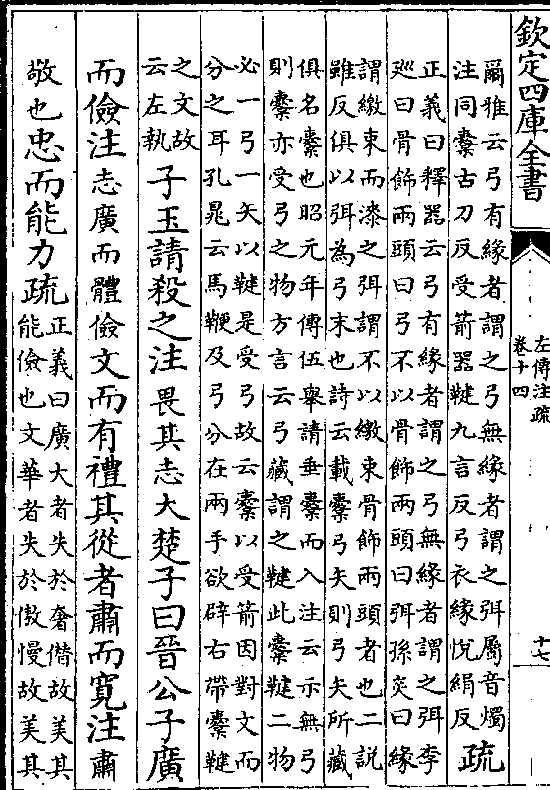 欽定四庫全書
左傳注疏
卷十四
十七
爾雅云弓有緣者謂之弓無緣者謂之弭屬音燭
注同櫜古刀反受箭器鞬九言反弓衣緣悅絹反
疏
正義曰釋器云弓有緣者謂之弓無緣者謂之弭李
廵曰骨飾兩頭曰弓不以骨飾兩頭曰弭孫炎曰緣
謂繳束而漆之弭謂不以繳束骨飾兩頭者也二説
雖反俱以弭為弓末也詩云載櫜弓矢則弓矢所藏
俱名櫜也昭元年傳伍舉請垂櫜而入注云示無弓
則櫜亦受弓之物方言云弓藏謂之鞬此櫜鞬二物
必一弓一矢以鞬是受弓故云櫜以受箭因對文而
分之耳孔晁云馬鞭及弓分在兩手欲辟右帶櫜鞬
之文故
云左執
子玉請殺之注畏其志大楚子曰晉公子廣
而儉注志廣而體儉文而有禮其從者肅而寛注肅
敬也忠而能力疏
正義曰廣大者失於奢僭故美其
能儉也文華者失於傲慢故美其